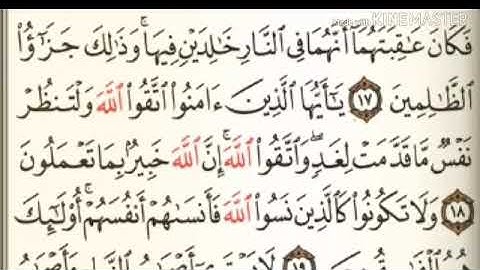 Made with KINEMASTER
فَكَانَ عَٰقِبَتَهُمَآ أَنَّهُمَا فِى ٱلنَّارِ خَٰلِدَيْنِ فِيهَا ۚ وَذَٰلِكَ جَزَٰٓؤُا۟
ٱلظَّٰلِمِينَ ١٧ يَٰٓأَيُّهَا ٱلَّذِينَ ءَامَنُوا۟ ٱتَّقُوا۟ ٱللَّهَ وَلْتَنظُرْ
نَفْسٌ مَّا قَدَّمَتْ لِغَدٍ ۖ وَٱتَّقُوا۟ ٱللَّهَ ۚ إِنَّ ٱللَّهَ خَبِيرٌۢ بِمَا تَعْمَلُونَ
١٨ وَلَا تَكُونُوا۟ كَٱلَّذِينَ نَسُوا۟ ٱللَّهَ فَأَنسَىٰهُمْ أَنفُسَهُمْ ۚ أُو۟لَٰٓئِكَ
١٩ لَا يَسْتَوِىٓ أَصْحَٰبُ